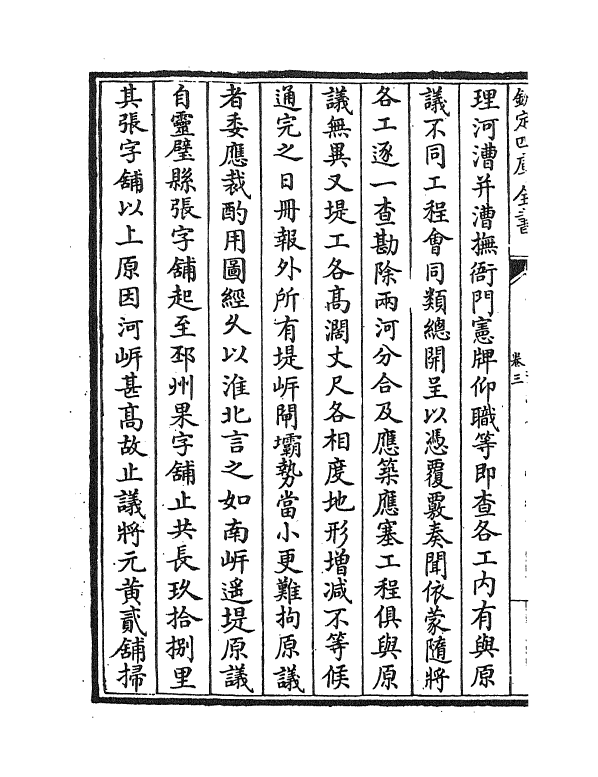 欽定四庫全書
卷三
理河漕并漕撫衙門憲牌仰職等即查各工内有與原
議不同工程會同類總開呈以憑覆覈奏聞依蒙隨將
各工逐一查勘除兩河分合及應築應塞工程俱與原
議無異又堤工各高濶丈尺各相度地形增減不等候
通完之日冊報外所有堤岍閘壩勢當小更難拘原議
者委應裁酌用圖經乆以淮北言之如南岍遥堤原議
自靈璧縣張字舖起至邳州果字舖止共長玖拾捌里
其張字舖以上原因河岍甚髙故止議將元黄貳舖掃